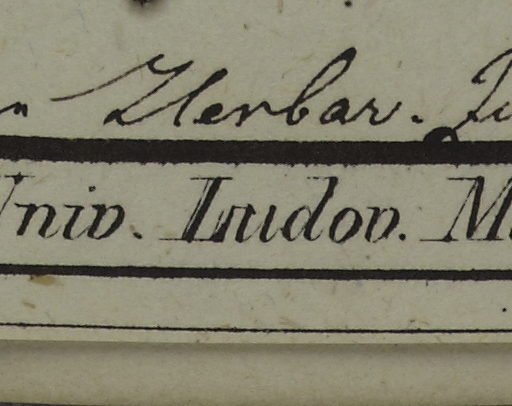 Herbar.
Univ. Ludov. M